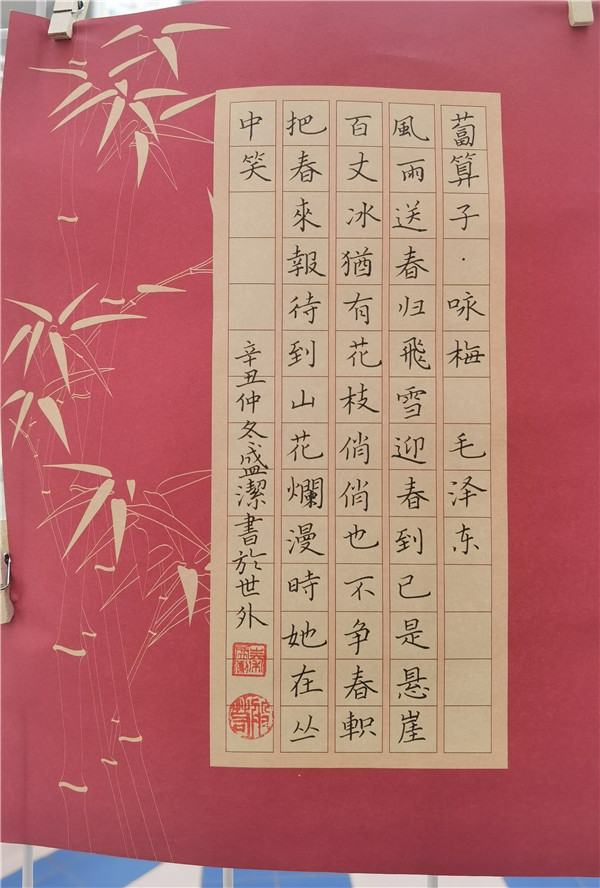 蔔算子·咏梅 毛泽东
風雨送春归飛雪迎春到已是悬崖
百丈冰猶有花枝俏俏也不争春軹
把春來報待到山花爛漫時她在丛
中笑
辛丑仲冬盛潔書於世外